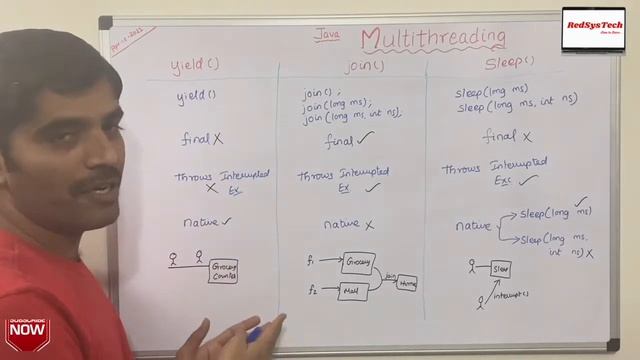 Apr-2-2023
Java
Multithreading
RedSysTech
yield()
join()
Sleep()
yield()
join();
join(long ms);
join(long ms, int ns);
sleep(long ms)
sleep(long ms, int ns)
final X
final ✓
final X
Throws Interrupted
X Ex
Throws Interrupted
Ex ✓
Throws Interrupted
Exc ✓
native ✓
native X
native
Sleep(long ms) ✓
Sleep(long ms,
int ns) X
Grocery
Counter
f1
Grocery
f2
Mall
join
Home
Sleep
interrupt()
SUBSCRIBE
NOW